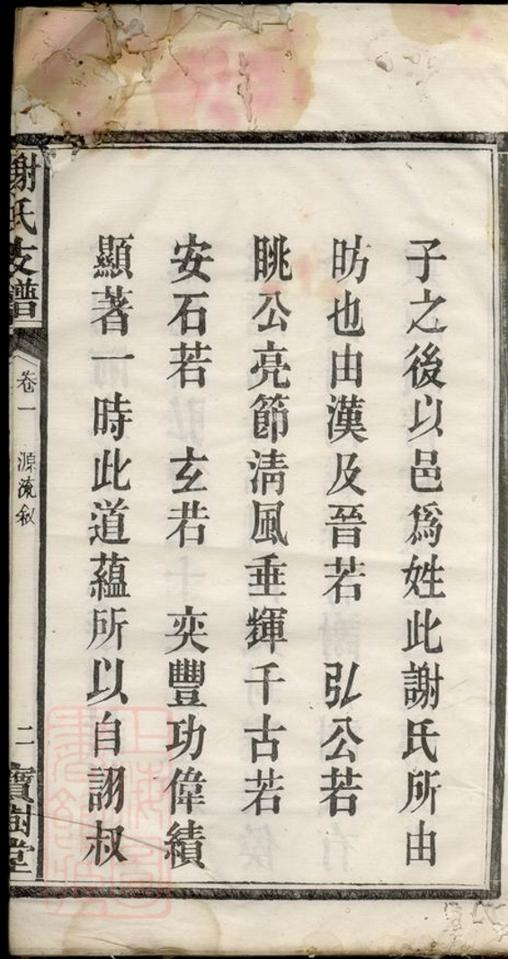 子之後以邑爲姓此謝氏所由
昉也由漢及晉若 弘公若
眺公亮節清風垂輝千古若
安石若 玄若 奕豐功偉績
顯著一時此道蘊所以自詡叔
謝氏支譜
卷一 源流叙
二
寶樹堂